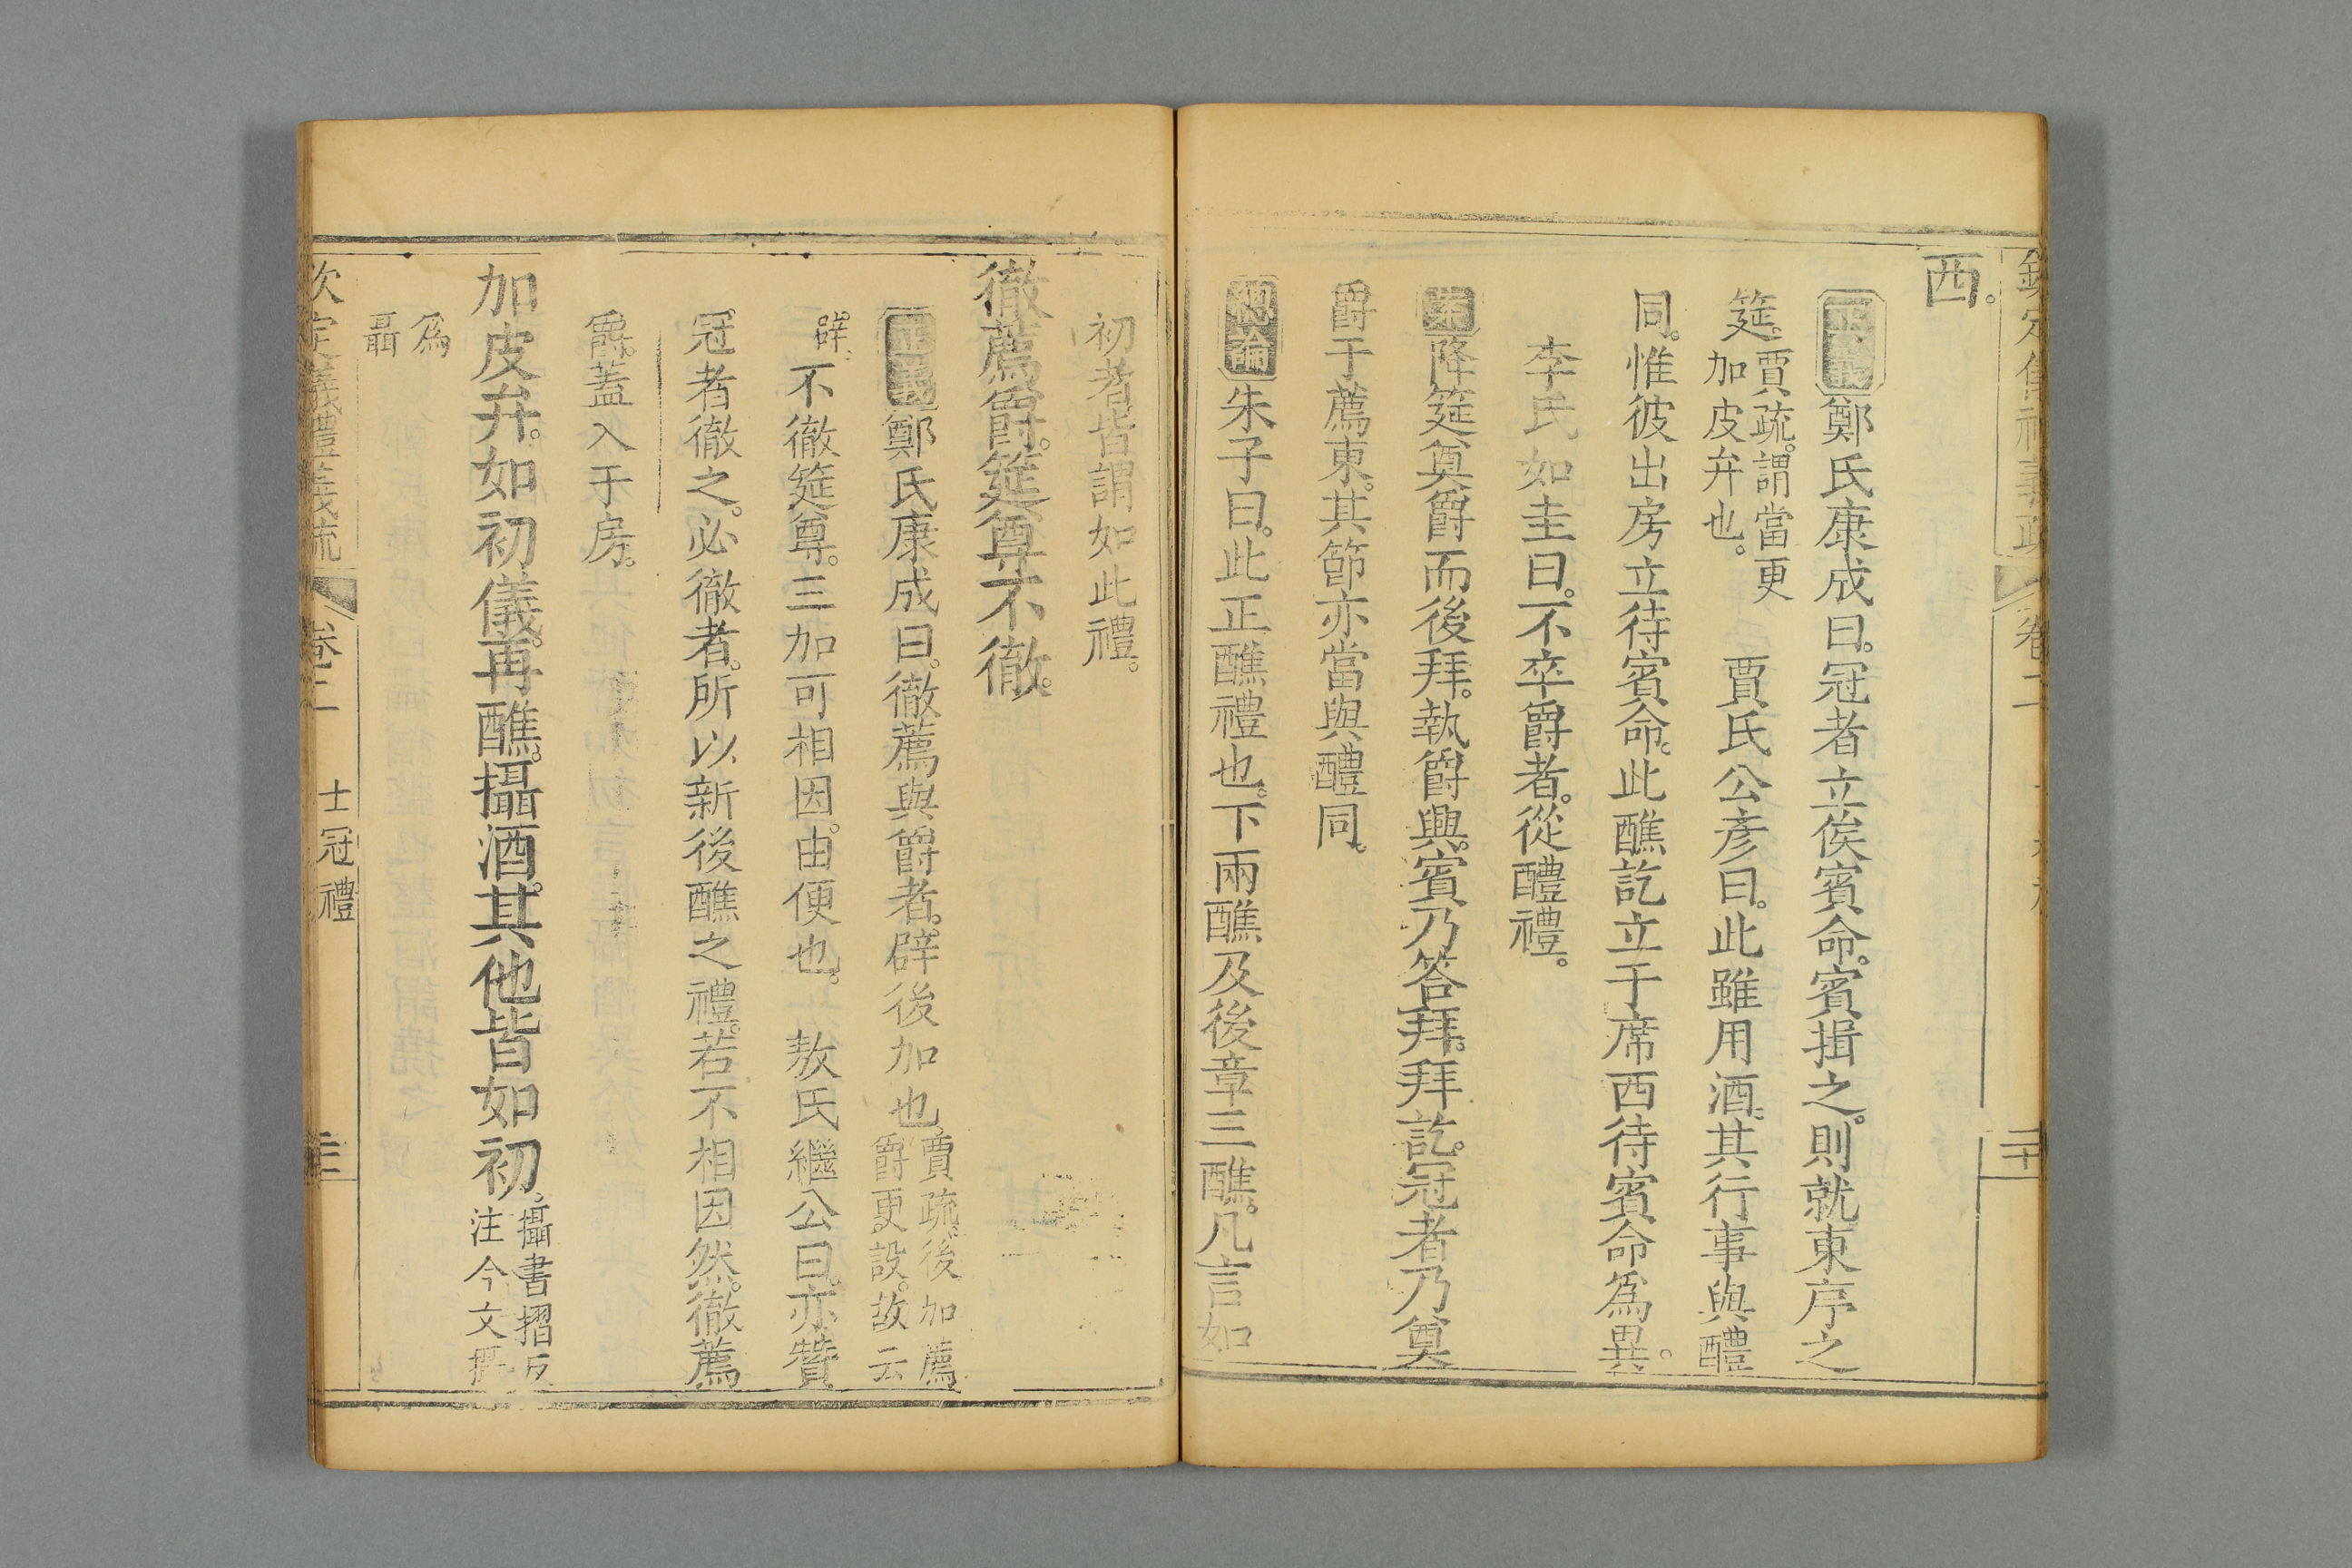 西。
正義鄭氏康成曰。冠者立俟賓命。賓揖之。則就東序之
筵。賈疏。謂當更加皮弁也。 賈氏公彥曰。此雖用酒。其行事與醴
同。惟彼出房立待賓命。此醮訖立于席西待賓命爲異。
李氏如圭曰。不卒爵者。從醴禮。
案降筵奠爵而後拜。執爵興。賓乃答拜。拜訖。冠者乃奠
爵于薦東。其節亦當與醴同。
總論朱子曰。此正醮禮也。下兩醮及後章三醮。凡言如
初者皆謂如此禮。
徹薦爵。筵尊不徹。
正義鄭氏康成曰。徹薦與爵者。辟後加也。賈疏。後加薦爵更設。故云
辟。不徹筵尊。三加可相因。由便也。 敖氏繼公曰。亦贊
冠者徹之。必徹者。所以新後醮之禮。若不相因然。徹薦
爵。蓋入于房。
加皮弁。如初儀。再醮。攝酒。其他皆如初。攝書摺反注今文攝
爲聶
欽定儀禮義疏 卷二 士冠禮